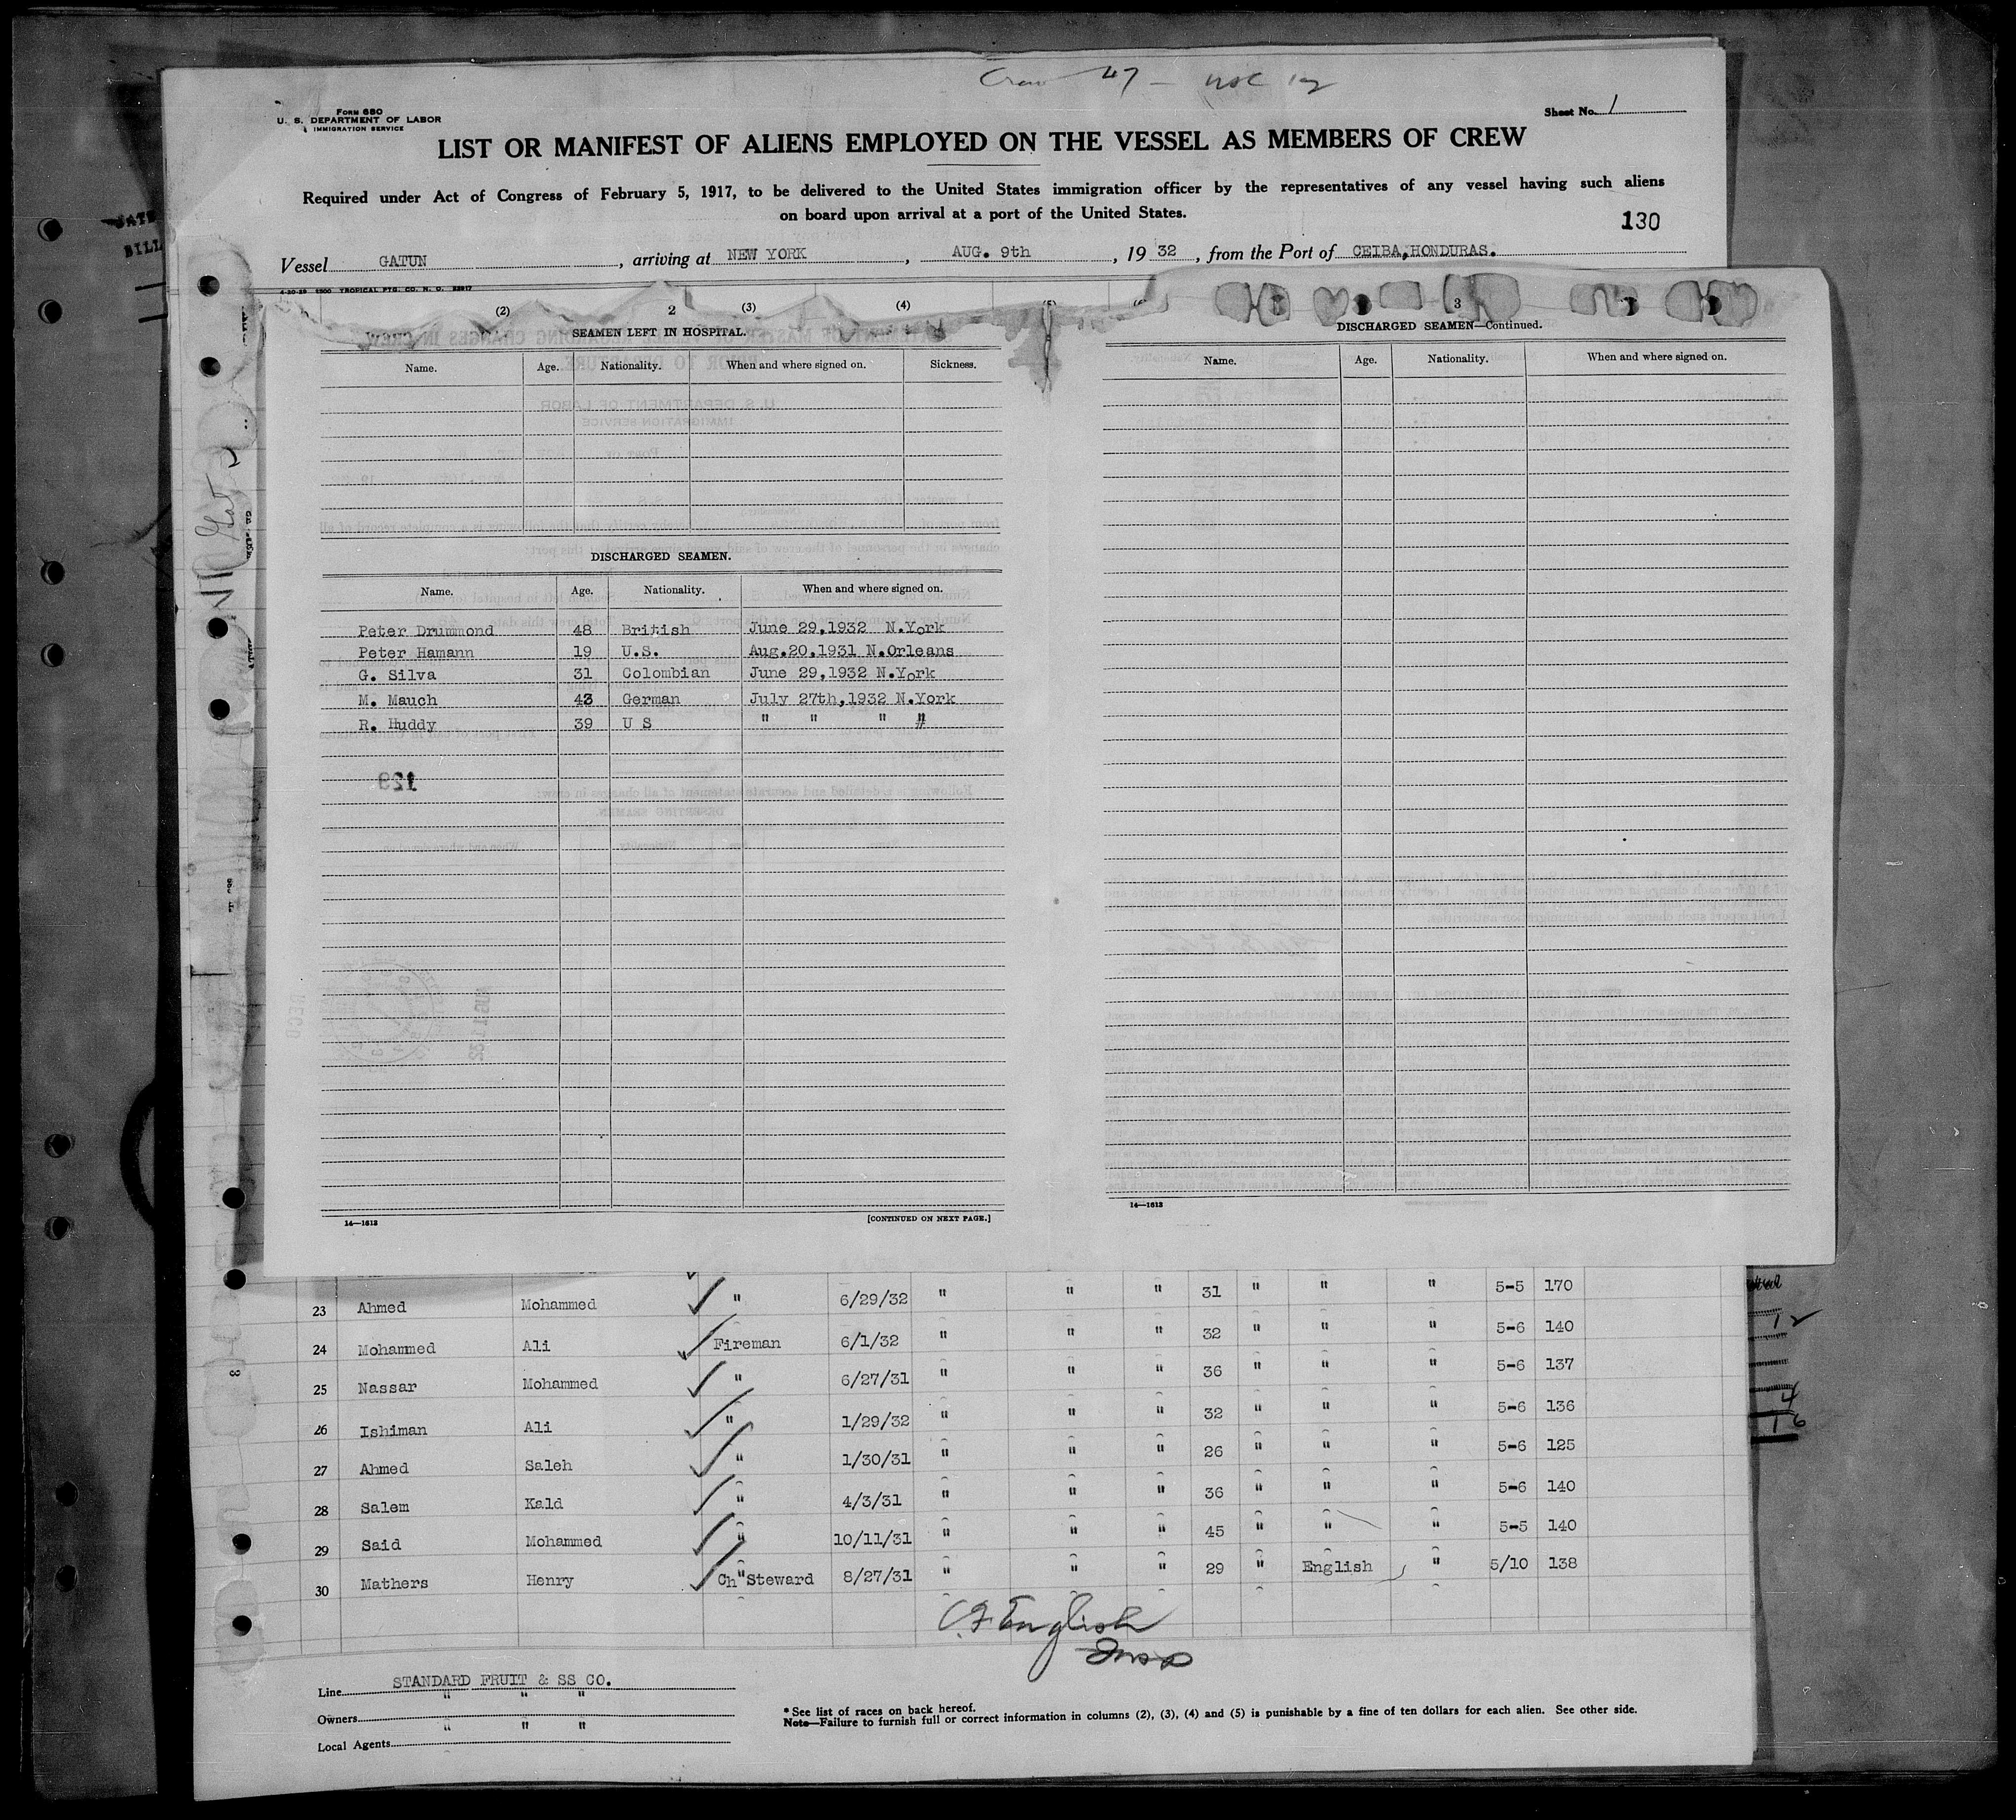 Crew 47 - USC 12
FORM 680
U. S. DEPARTMENT OF LABOR
IMMIGRATION SERVICE
Sheet No. 1
LIST OR MANIFEST OF ALIENS EMPLOYED ON THE VESSEL AS MEMBERS OF CREW
Required under Act of Congress of February 5, 1917, to be delivered to the United States immigration officer by the representatives of any vessel having such aliens
on board upon arrival at a port of the United States.
130
Vessel GATUN, arriving at NEW YORK, AUG. 9th, 1932, from the Port of CEIBA, HONDURAS.
(2) 2 (3) (4) (5) 3
SEAMEN LEFT IN HOSPITAL.
Name. Age. Nationality. When and where signed on. Sickness.
DISCHARGED SEAMEN.
Name. Age. Nationality. When and where signed on.
Peter Drummond 48 British June 29,1932 N.York
Peter Hamann 19 U.S. Aug.20,1931 N.Orleans
G. Silva 31 Colombian June 29,1932 N.York
M. Mauch 43 German July 27th,1932 N.York
R. Huddy 39 U S " " " "
129
14—1613 [CONTINUED ON NEXT PAGE.]
DISCHARGED SEAMEN—Continued.
Name. Age. Nationality. When and where signed on.
14—1613
23 Ahmed Mohammed " 6/29/32 " " " 31 " " " 5-5 170
24 Mohammed Ali Fireman 6/1/32 " " " 32 " " " 5-6 140
25 Nassar Mohammed " 6/27/31 " " " 36 " " " 5-6 137
26 Ishiman Ali " 1/29/32 " " " 32 " " " 5-6 136
27 Ahmed Saleh " 1/30/31 " " " 26 " " " 5-6 125
28 Salem Kald " 4/3/31 " " " 36 " " " 5-6 140
29 Said Mohammed " 10/11/31 " " " 45 " " " 5-5 140
30 Mathers Henry Ch"Steward 8/27/31 " " " 29 " English " 5/10 138
C.F. English
Insp
Line STANDARD FRUIT & SS CO.
Owners " " "
Local Agents " " "
* See list of races on back hereof.
Note—Failure to furnish full or correct information in columns (2), (3), (4) and (5) is punishable by a fine of ten dollars for each alien. See other side.